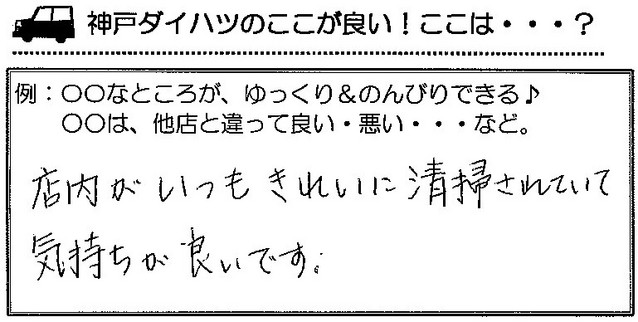 神戸ダイハツのここが良い！ここは・・・？
例：〇〇なところが、ゆっくり＆のんびりできる♪
〇〇は、他店と違って良い・悪い・・・など。
店内がいつもきれいに清掃されていて
気持ちが良いです。